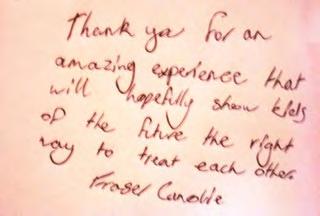 Thank you for an
amazing experience that
will hopefully show kids
of the future the right
way to treat each other.
Fraser